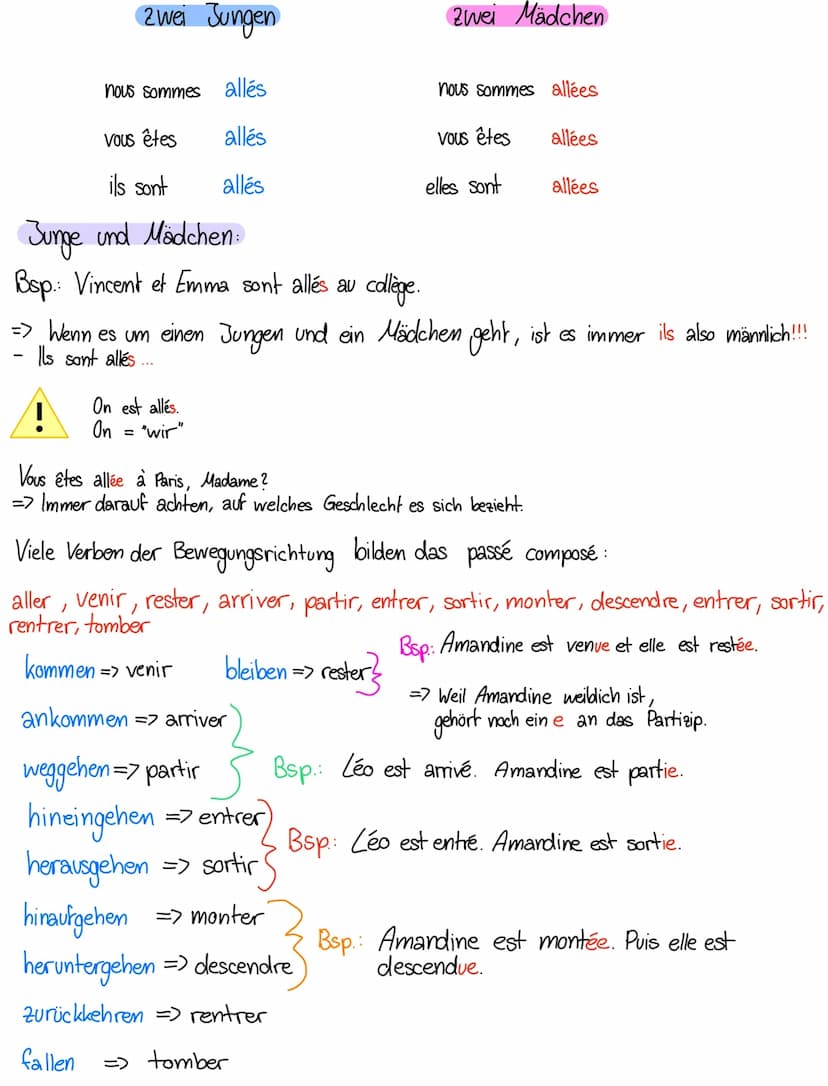 zwei Jungen zwei Mädchen
nous sommes allés nous sommes allées
vous êtes allés vous êtes allées
ils sont allés elles sont allées
Junge und Mädchen:
Bsp.: Vincent et Emma sont allés au collège.
=> Wenn es um einen Jungen und ein Mädchen geht, ist es immer ils also männlich!!!
- Ils sont allés ...
! On est allés.
On = "wir"
Vous êtes allée à Paris, Madame?
=> Immer darauf achten, auf welches Geschlecht es sich bezieht.
Viele Verben der Bewegungsrichtung bilden das passé composé:
aller, venir, rester, arriver, partir, entrer, sortir, monter, descendre, entrer, sortir,
rentrer, tomber
Bsp.: Amandine est venue et elle est restée.
kommen => venir bleiben => rester
=> Weil Amandine weiblich ist,
gehört noch ein e an das Partizip.
ankommen => arriver
weggehen => partir Bsp.: Léo est arrivé. Amandine est partie.
hineingehen => entrer
Bsp.: Léo est entré. Amandine est sortie.
herausgehen => sortir
hinaufgehen => monter
Bsp.: Amandine est montée. Puis elle est
descendue.
heruntergehen => descendre
zurückkehren => rentrer
fallen => tomber